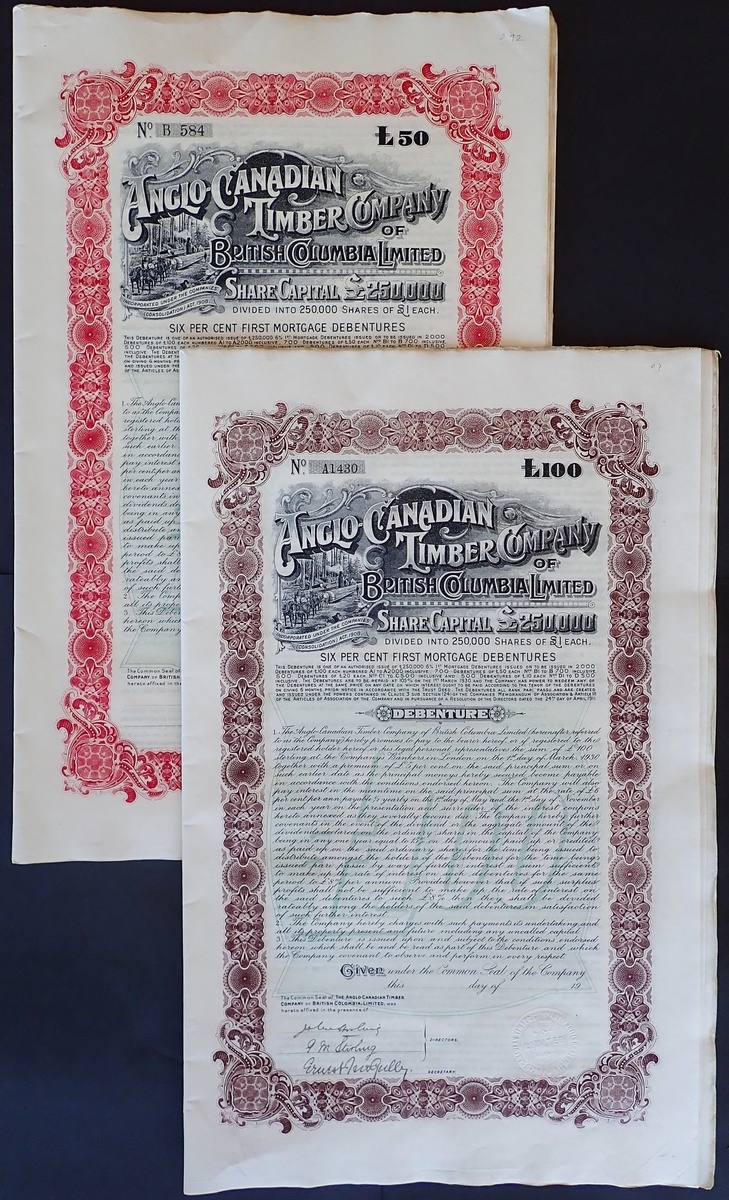 292
No B 584
£50
ANGLO-CANADIAN
TIMBER COMPANY
OF
BRITISH COLUMBIA LIMITED
INCORPORATED UNDER THE COMPANIES
(CONSOLIDATION) ACT, 1908.
SHARE CAPITAL £250,000
DIVIDED INTO 250,000 SHARES OF £1 EACH.
SIX PER CENT FIRST MORTGAGE DEBENTURES
THIS DEBENTURE IS ONE OF AN AUTHORISED ISSUE OF £250,000 6% 1ST MORTGAGE DEBENTURES ISSUED OR TO BE ISSUED IN 2000
DEBENTURES OF £100 EACH NUMBERED A1 TO A2000 INCLUSIVE, 700 DEBENTURES OF £50 EACH, Nos B1 TO B700 INCLUSIVE
1. The Anglo-Can
to as the Compa
registered hol
sterling at th
together with
such earlier
in accordanc
pay interest
per cent per an
in each year
hereto annex
covenants in
dividends de
being in any
as paid up
distribute an
issued pa
to make up
period to £8
profits shall
the said de
rateably am
of such furth
2. The Comp
all its prope
3. This Deben
hereon which
the Company
The Common Seal of
COMPANY OF BRITISH
hereto affixed in the
No. A1430
£100
ANGLO-CANADIAN
TIMBER COMPANY
OF
BRITISH COLUMBIA LIMITED
INCORPORATED UNDER THE COMPANIES
(CONSOLIDATION) ACT, 1908.
SHARE CAPITAL £250,000
DIVIDED INTO 250,000 SHARES OF £1 EACH.
SIX PER CENT FIRST MORTGAGE DEBENTURES
THIS DEBENTURE IS ONE OF AN AUTHORISED ISSUE OF £250,000 6% 1ST MORTGAGE DEBENTURES ISSUED OR TO BE ISSUED IN 2000
DEBENTURES OF £100 EACH NUMBERED A1 TO A2000 INCLUSIVE, 700 DEBENTURES OF £50 EACH, Nos B1 TO B700 INCLUSIVE
500 DEBENTURES OF £20 EACH, Nos C1 TO C500 INCLUSIVE AND 500 DEBENTURES OF £10 EACH Nos D1 TO D500
INCLUSIVE. THE DEBENTURES ARE TO BE REPAID AT 105% ON THE 1ST MARCH 1930 AND THE COMPANY HAS POWER TO REDEEM ANY OF
THE DEBENTURES AT THE SAME RATE ON ANY DATE
ON GIVING 6 MONTHS PRIOR NOTICE IN ACCORDANCE WITH THE TRUST DEED. THE DEBENTURES ALL RANK PARI PASSU AND ARE CREATED
AND ISSUED UNDER THE POWERS CONTAINED IN CLAUSE 3 SUB SECTION OF THE COMPANIES MEMORANDUM OF ASSOCIATION & ARTICLE
OF THE ARTICLES OF ASSOCIATION OF THE COMPANY AND IN PURSUANCE OF A RESOLUTION OF THE DIRECTORS DATED THE 24TH DAY OF APRIL 1911
DEBENTURE
1. The Anglo-Canadian Timber Company of British Columbia Limited (hereinafter referred
to as the Company) hereby promises to pay to the bearer hereof or if registered to the
registered holder hereof or his legal personal representatives the sum of £100
sterling at the Company's Bankers in London on the 1st day of March 1930
together with a premium of £5 per cent on the said principal sum or on
such earlier date as the principal moneys hereby secured become payable
in accordance with the conditions endorsed hereon. The Company will also
pay interest in the meantime on the said principal sum at the rate of £6
per cent per ann. payable ½ yearly on the 1st day of May and the 1st day of November
in each year on the presentation and surrender of the interest coupons
hereto annexed as they severally become due. The Company hereby further
covenants in the event of the dividend or the aggregate amount of the
dividends declared on the ordinary shares in the capital of the Company
being in any one year equal to 8% on the amount paid up or credited
as paid up on the said ordinary shares for the time being issued to
distribute amongst the holders of the Debentures for the time being
issued pari passu by way of further interest a sum sufficient
to make up the rate of interest on such debentures for the same
period to £8% per annum. Provided however that if such surplus
profits shall not be sufficient to make up the rate of interest on
the said debentures to such £8% then they shall be divided
rateably among the holders of the said debentures in satisfaction
of such further interest.
2. The Company hereby charges with such payments its undertaking and
all its property present and future including any uncalled capital.
3. This Debenture is issued upon and subject to the conditions endorsed
hereon which shall be and be read as part of this Debenture and which
the Company covenant to observe and perform in every respect.
Given under the Common Seal of the Company
this day of 19
The Common Seal of THE ANGLO-CANADIAN TIMBER
COMPANY OF BRITISH COLOMBIA, LIMITED, was
hereto affixed in the presence of
DIRECTORS.
SECRETARY.